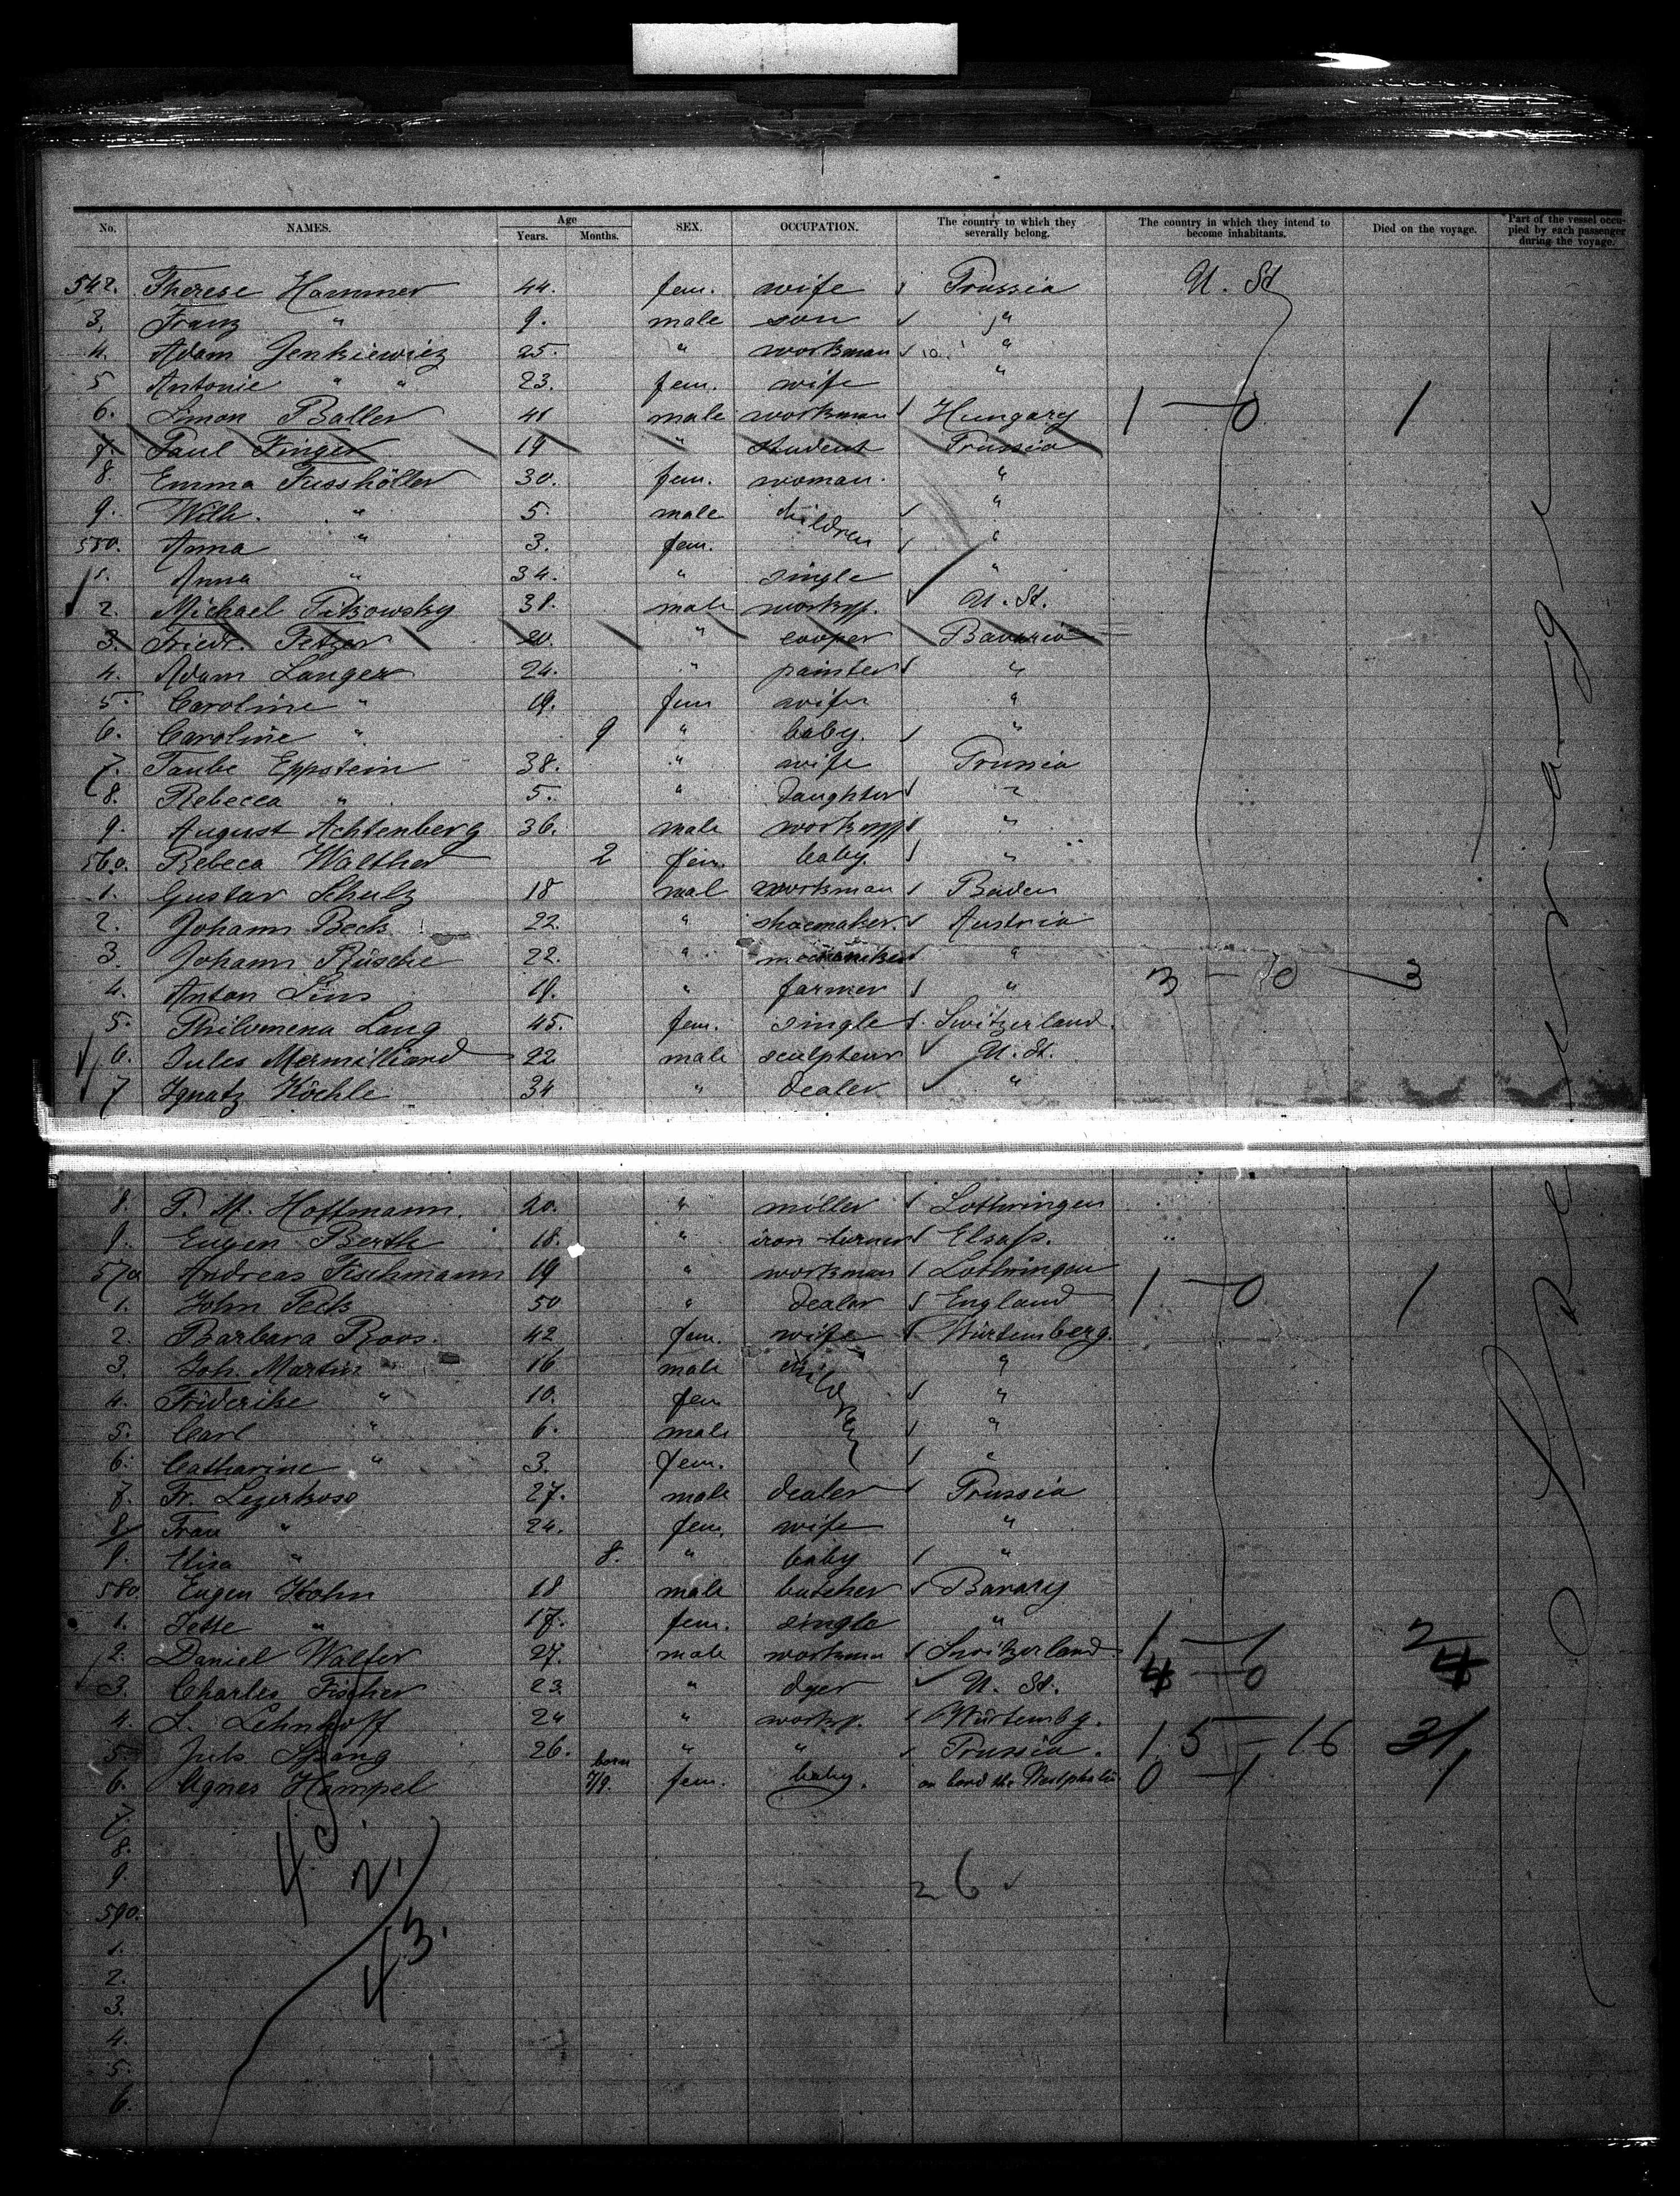 No. NAMES. Age Years. Months. SEX. OCCUPATION. The country to which they severally belong. The country in which they intend to become inhabitants. Died on the voyage. Part of the vessel occupied by each passenger during the voyage.
542. Therese Hammer 44. fem. wife Prussia U. St
3. Franz " 9. male son "
4. Adam Jenkiewicz 25. " workman "
5 Antonie " " 23. fem. wife "
6. Simon Baller 41 male workman Hungary 1 — 0 1
7. Paul Finger 19 " student Prussia
8. Emma Fusshöller 30. fem. woman. "
9. Wilh. " 5. male children "
550. Anna " 3. fem. "
1. Anna " 34. " single "
2. Michael Pikowsky 38. male workm. U. St.
3. Friedr. Fetzer 20. " cooper Bavaria
4. Adam Langer 24. " painter "
5. Caroline " 19. fem wife "
6. Caroline " 9 " baby. "
7. Taube Eppstein 38. " wife Prussia
8. Rebecca " 5. " daughter "
9. August Achtenberg 36. male workm "
560. Rebeca Walther 2 fem. baby. "
1. Gustav Schulz 18 mal workman Baden
2. Johann Beck 22. " shoemaker. Austria
3. Johann Rüsche 22. " "
4. Anton Lins 19. " farmer " 3 — 0 3
5. Philomena Lang 45. fem. single Switzerland.
6. Jules Mermilliard 22 male sculpteur U. St.
7 Ignatz Köchle 34 " dealer "
8. P. M. Hoffmann. 20. " möller Lothringen
9. Eugen Berth 18. " iron turner Elsaß.
570 Andreas Fischmann 19 " workman Lothringen
1. John Peck 50 " dealer England 1 — 0 1
2. Barbara Roos. 42 fem. wife Würtemberg.
3. Joh. Martin 16 male children "
4. Friderike " 10. fem "
5. Carl " 6. male "
6. Catharine " 3. fem. "
7. Fr. Legerkose 27. male dealer Prussia
8. Frau " 24. fem. wife "
9. Elisa " 8. " baby "
580. Eugen Kohn 18 male butcher Bavary
1. Jette " 17. fem. single "
2. Daniel Walter 27. male workman Switzerland 1 — 1 2
3. Charles Fischer 23. " dyer U. St. 4 — 0 4
4. L. Lehnhoff 24 " workm. Würtembg.
5. Jul. Spang 26. " " Prussia. 15 — 16 31
6. Agnes Hampel born 7/9. fem. baby. on bord the Westphalia 0 — 1 1
7.
8.
9.
26
590.
1.
43.
2.
3.
4.
5.
6.